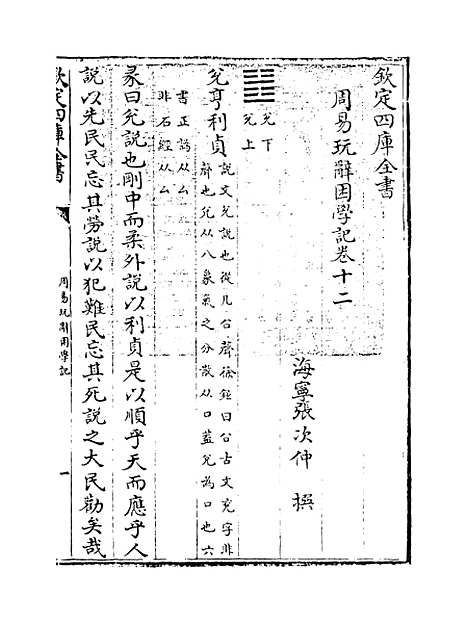 欽定四庫全書
周易玩辭困學記卷十二
海寧張次仲 撰
䷹
兌下
兌上
兌亨利貞
說文兌說也從几㕣聲徐鉉曰㕣古文兗字非
聲也兌从八象氣之分散从口蓋兌為口也六
書正譌从厶
非石經从厶
彖曰兌說也剛中而柔外說以利貞是以順乎天而應乎人
說以先民民忘其勞說以犯難民忘其死說之大民勸矣哉
欽定四庫全書
周易玩辭困學記
一